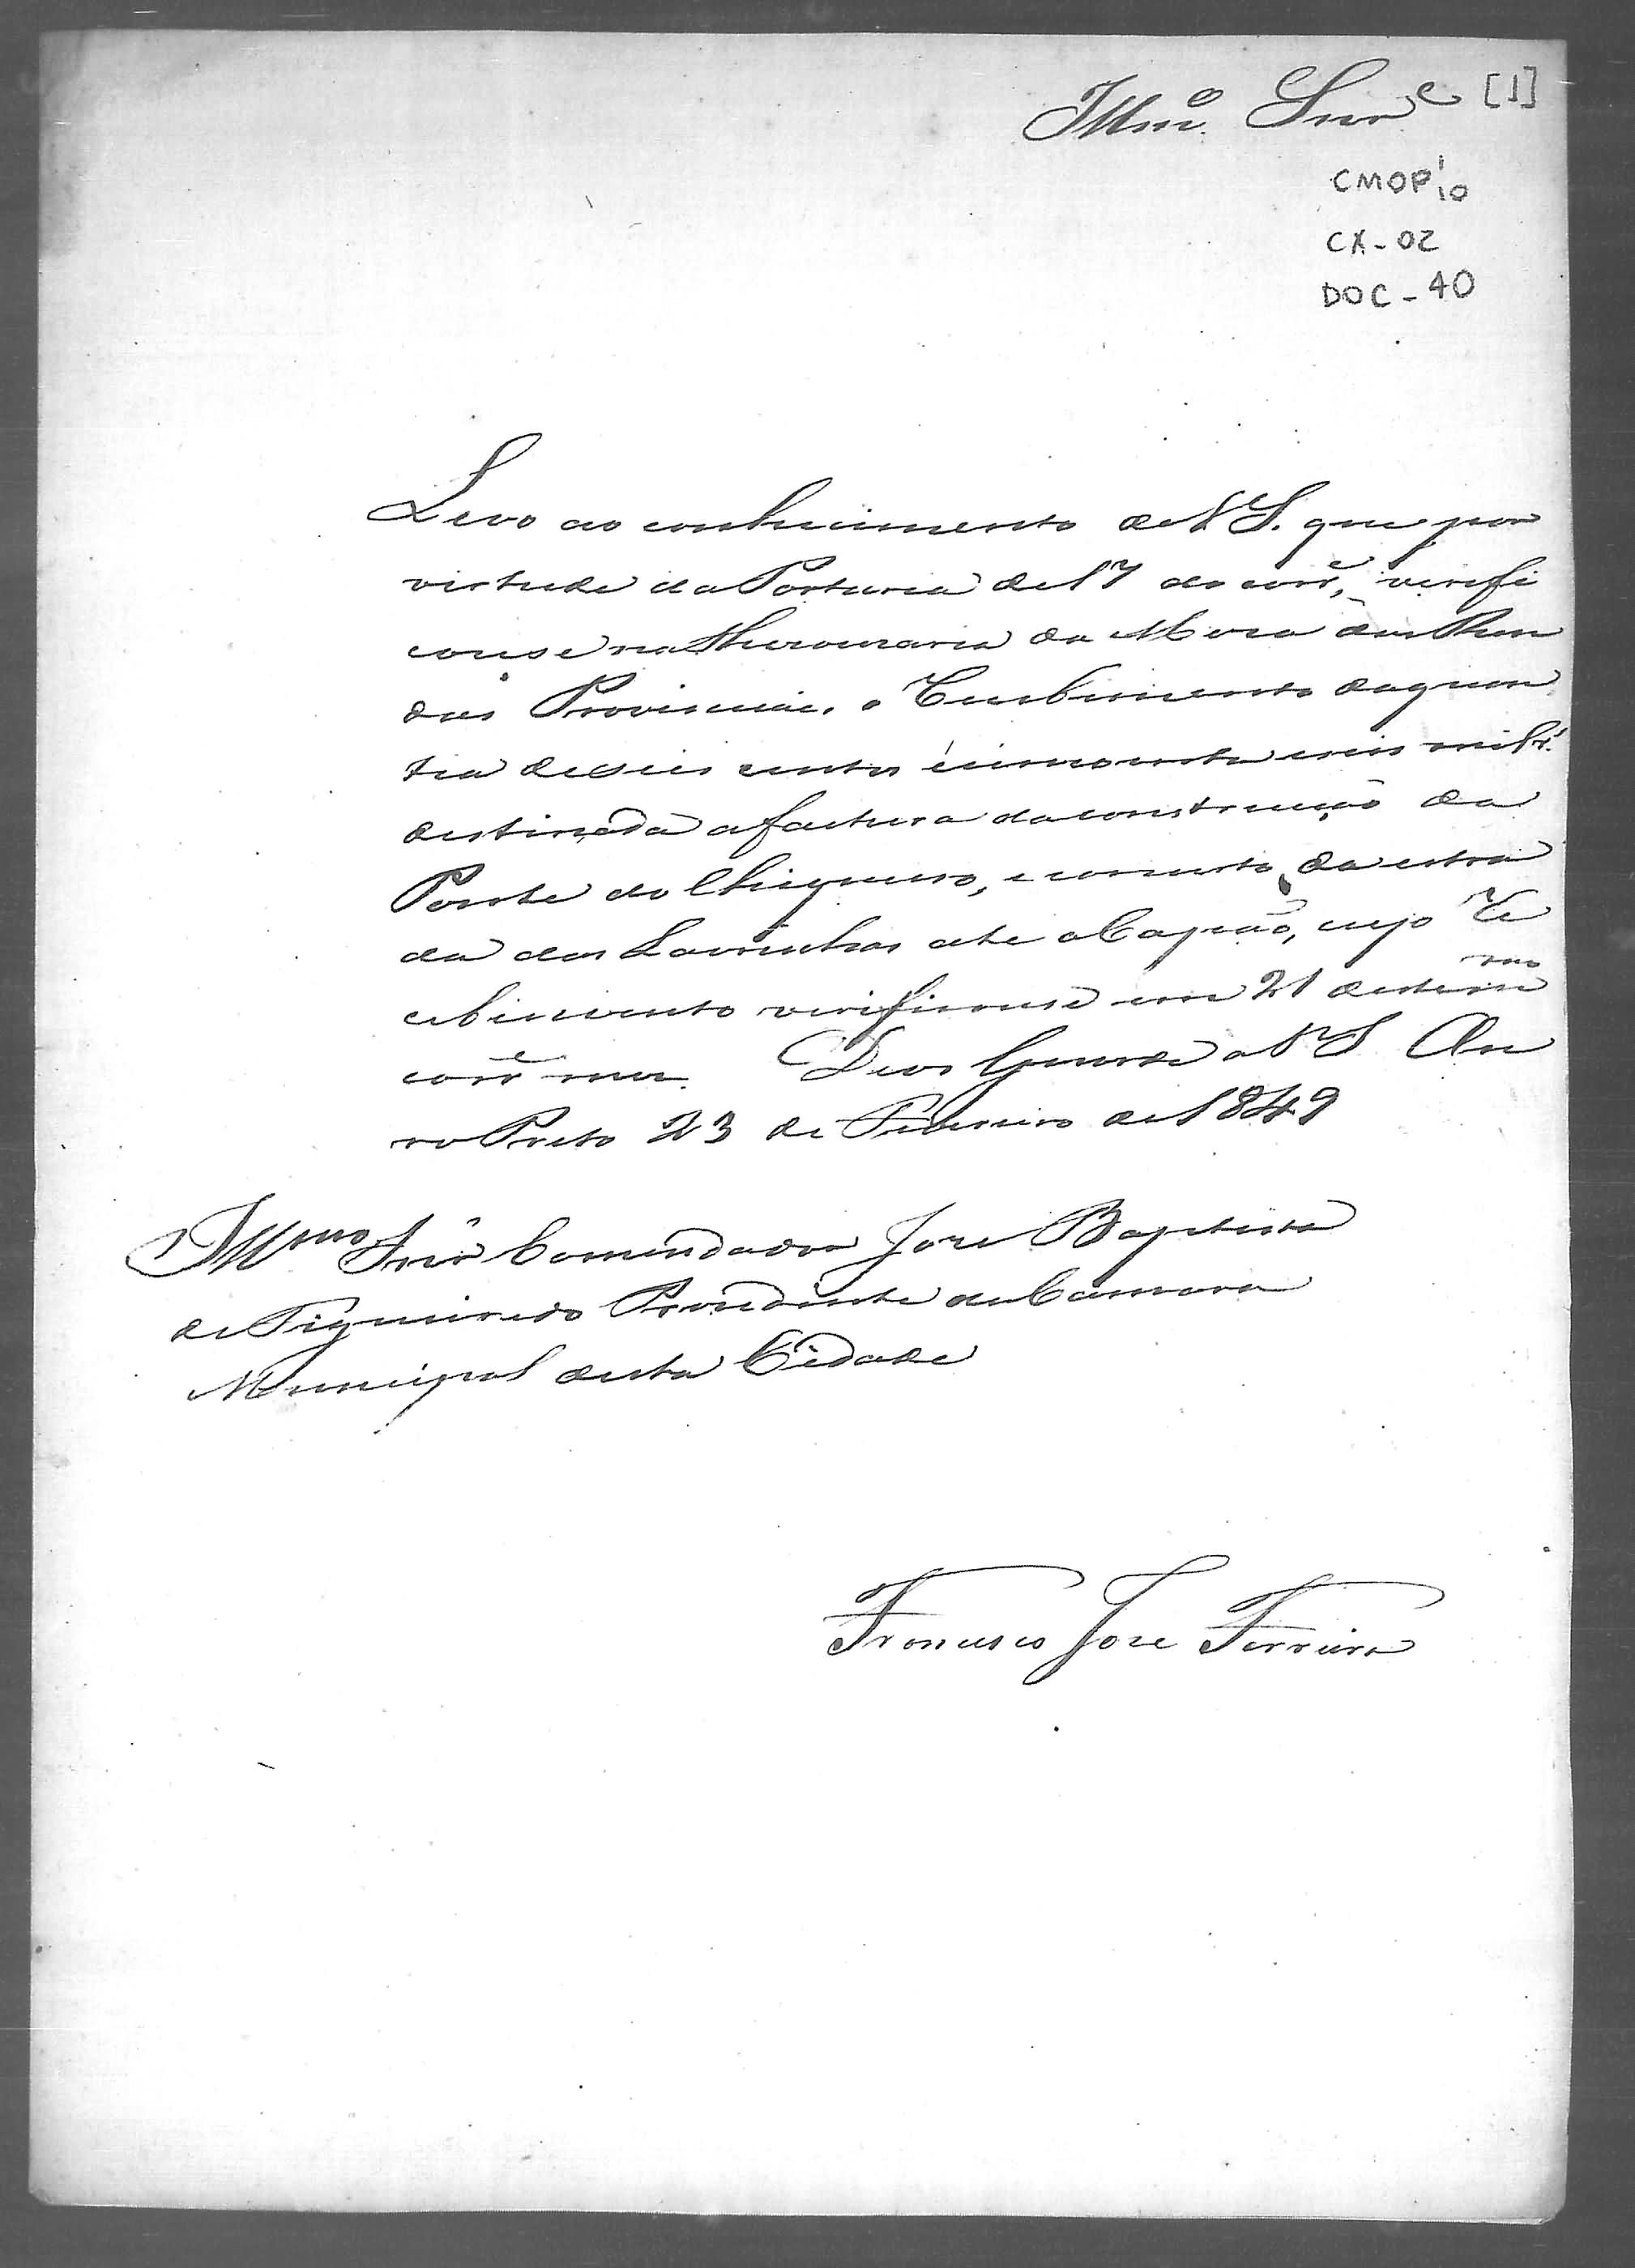 Illmo. Snr. [1]
CMOP 10
CX - 02
DOC - 40
Levo ao conhecimento de V S. que por
virtude da Portaria de 17 do corre, verifi
couse na Thesouraria da Mesa das Ren
das Provinciaes o Recebimento da quan
tia de seis centos mil rs.
destinada a factura da construcção da
Ponte do Chiqueiro, e concerto da estra
da das Lavrinhas ate o Capão, cujo Re
cebimento verificouse em 21 deste mmo
corre mez. Deos Guarde a V S Ou
ro Preto 23 de Fevereiro de 1849
Illmo Snr Comendador Jose Baptista
de Figueiredo Presidente da Camara
Municipal desta Cidade
Francisco Jose Ferreira